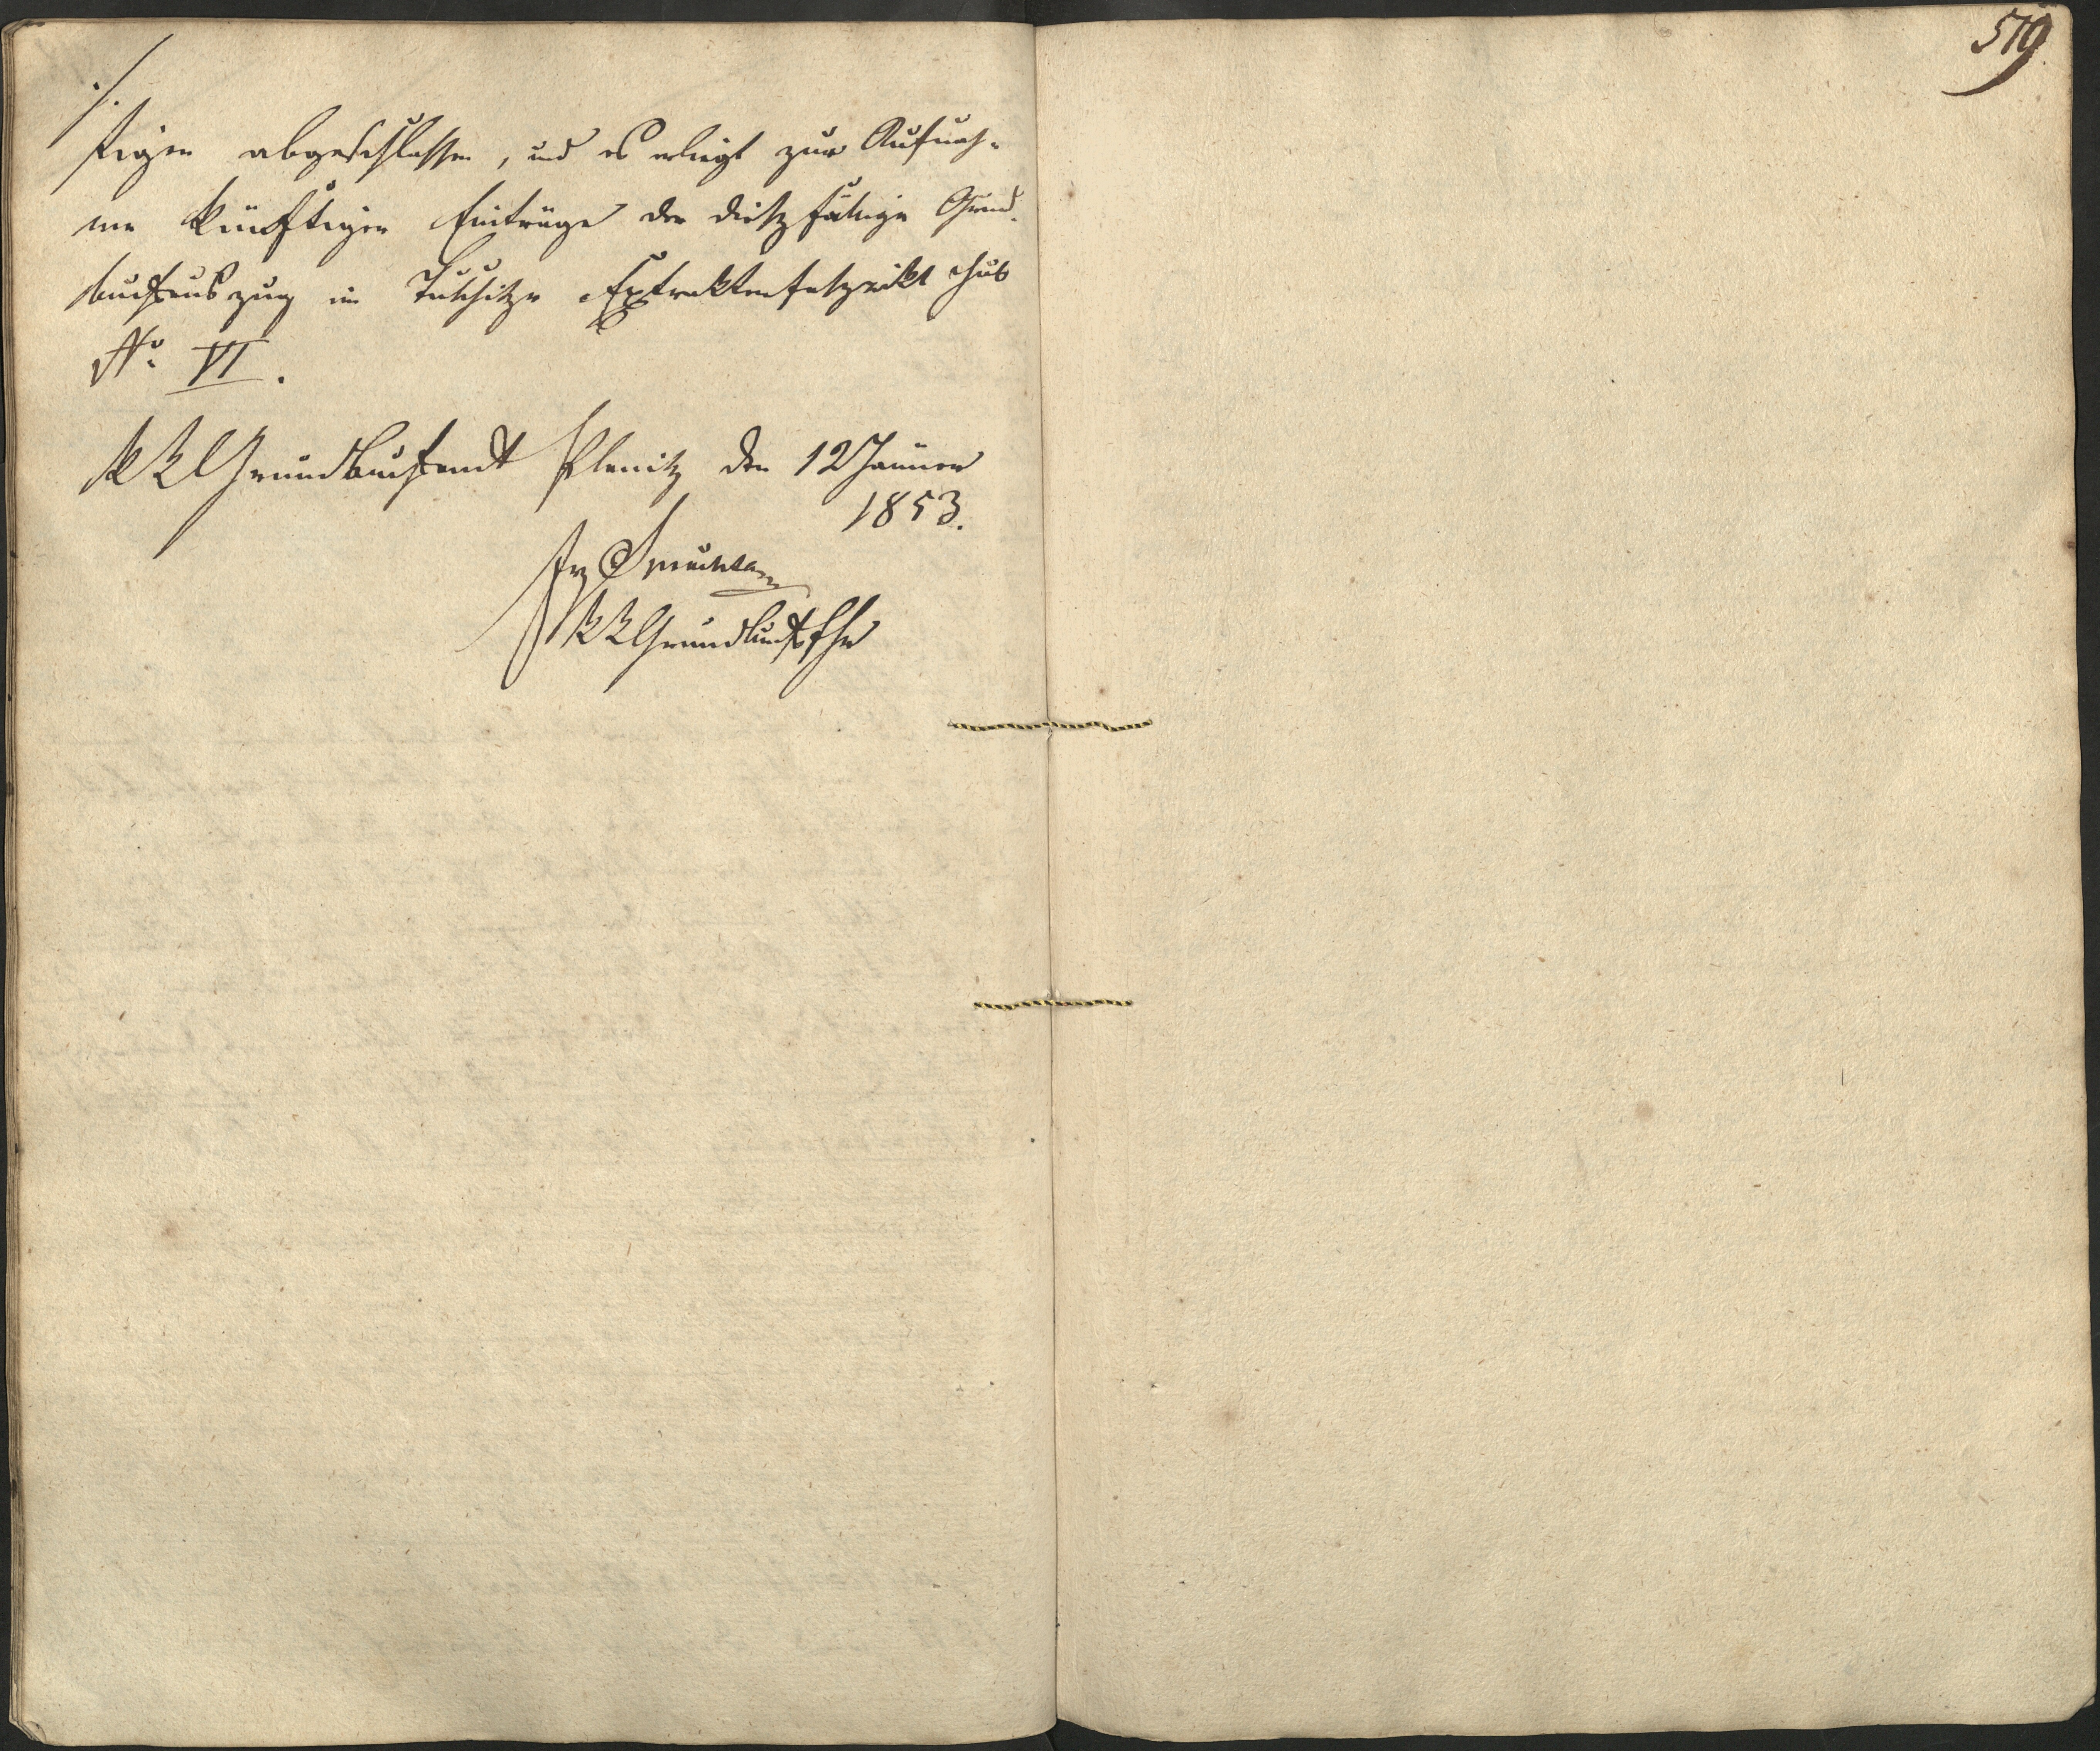 519.
./.
tigen abgeschlossen, und es erliegt zur Aufnah-
me künftiger Einträge der dießfällige Grund-
buchsauszug im Tuschitzer Extraktenfaszikl sub
No. VI.
KK Grundbuchsamt Planitz den 12 Jänner
1853.
Frz
KK Grundbuchsfhr